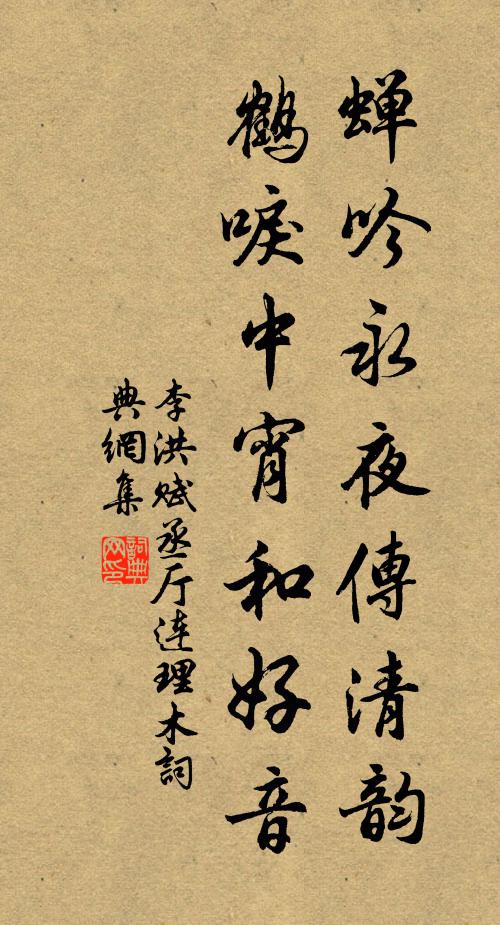 蝉吟永夜傳清韵
鶴唳中宵和好音
李洪赋丞厅连理木詞
典網集
詞典
网印